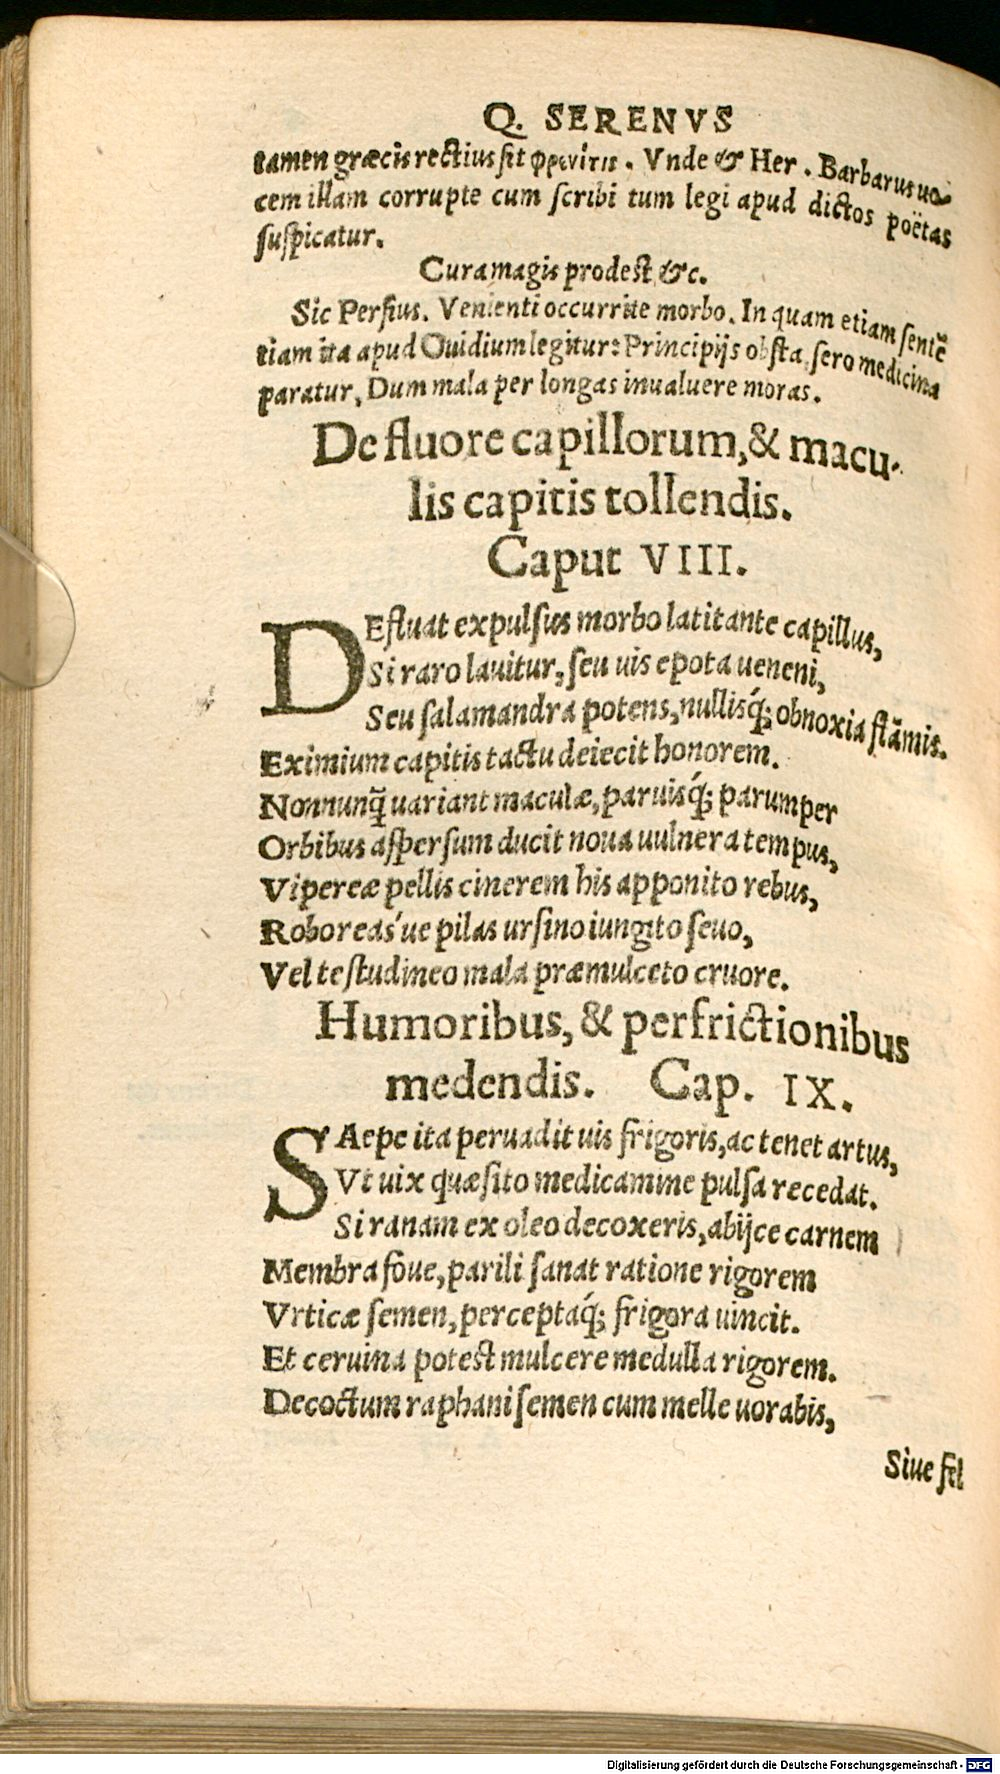 Q. SERENVS
tamen græcis rectius sit φρενίτις. Vnde & Her. Barbarus uo-
cem illam corrupte cum ſcribi tum legi apud dictos poëtas
ſuſpicatur.
Cura magis prodest &c.
Sic Perſius. Venienti occurrite morbo. In quam etiam ſentẽ
tiam ita apud Ouidium legitur: Principijs obſta, ſero medicina
paratur, Dum mala per longas inualuere moras.
De fluore capillorum, & macu-
lis capitis tollendis.
Caput VIII.
DEfluat expulſus morbo latitante capillus,
Si raro lauitur, ſeu uis epota ueneni,
Seu ſalamandra potens, nullisq́; obnoxia flãmis.
Eximium capitis tactu deiecit honorem.
Nonnunq̃ uariant maculæ, paruisq́; parumper
Orbibus aſperſum ducit noua uulnera tempus,
Vipereæ pellis cinerem his apponito rebus,
Roboreas´ue pilas urſino iungito ſeuo,
Vel teſtudineo mala præmulceto cruore.
Humoribus, & perfrictionibus
medendis. Cap. IX.
SAepe ita peruadit uis frigoris, ac tenet artus,
Vt uix quæſito medicamine pulſa recedat.
Si ranam ex oleo decoxeris, abijce carnem
Membra foue, parili ſanat ratione rigorem
Vrticæ ſemen, perceptaq́; frigora uincit.
Et ceruina potest mulcere medulla rigorem.
Decoctum raphani ſemen cum melle uorabis,
Siue fel
Digitalisierung gefördert durch die Deutsche Forschungsgemeinschaft - DFG